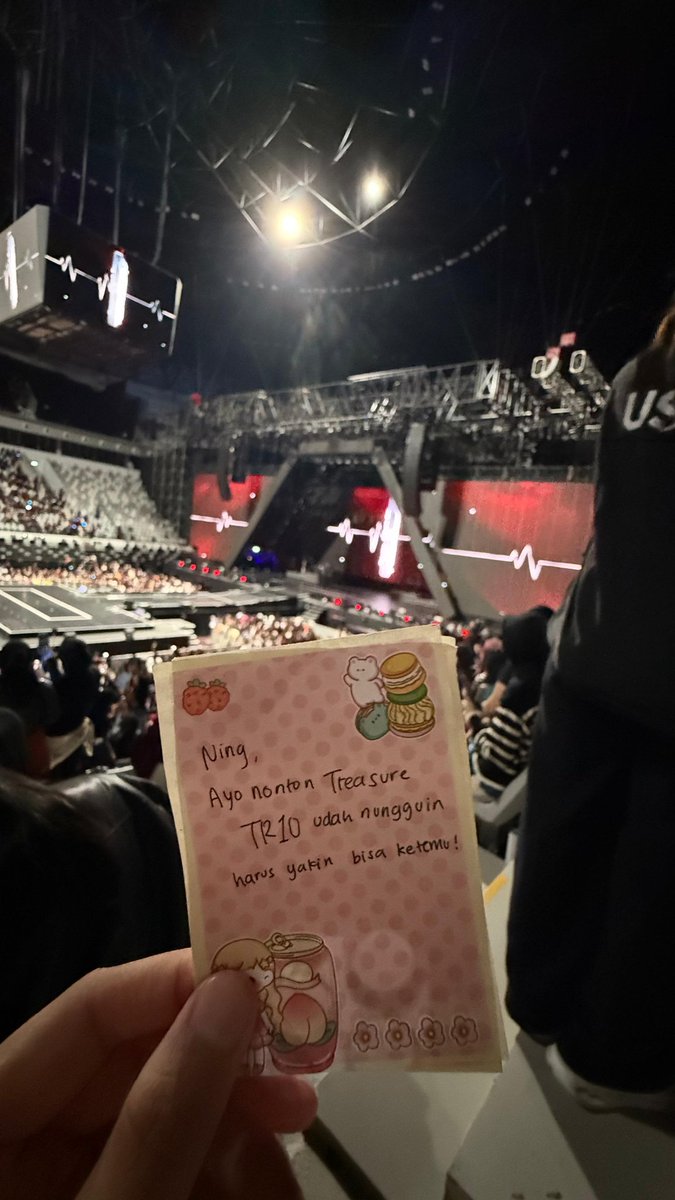 US
Ning,
Ayo nonton Treasure
TR10 udah nungguin
harus yakin bisa ketemu!